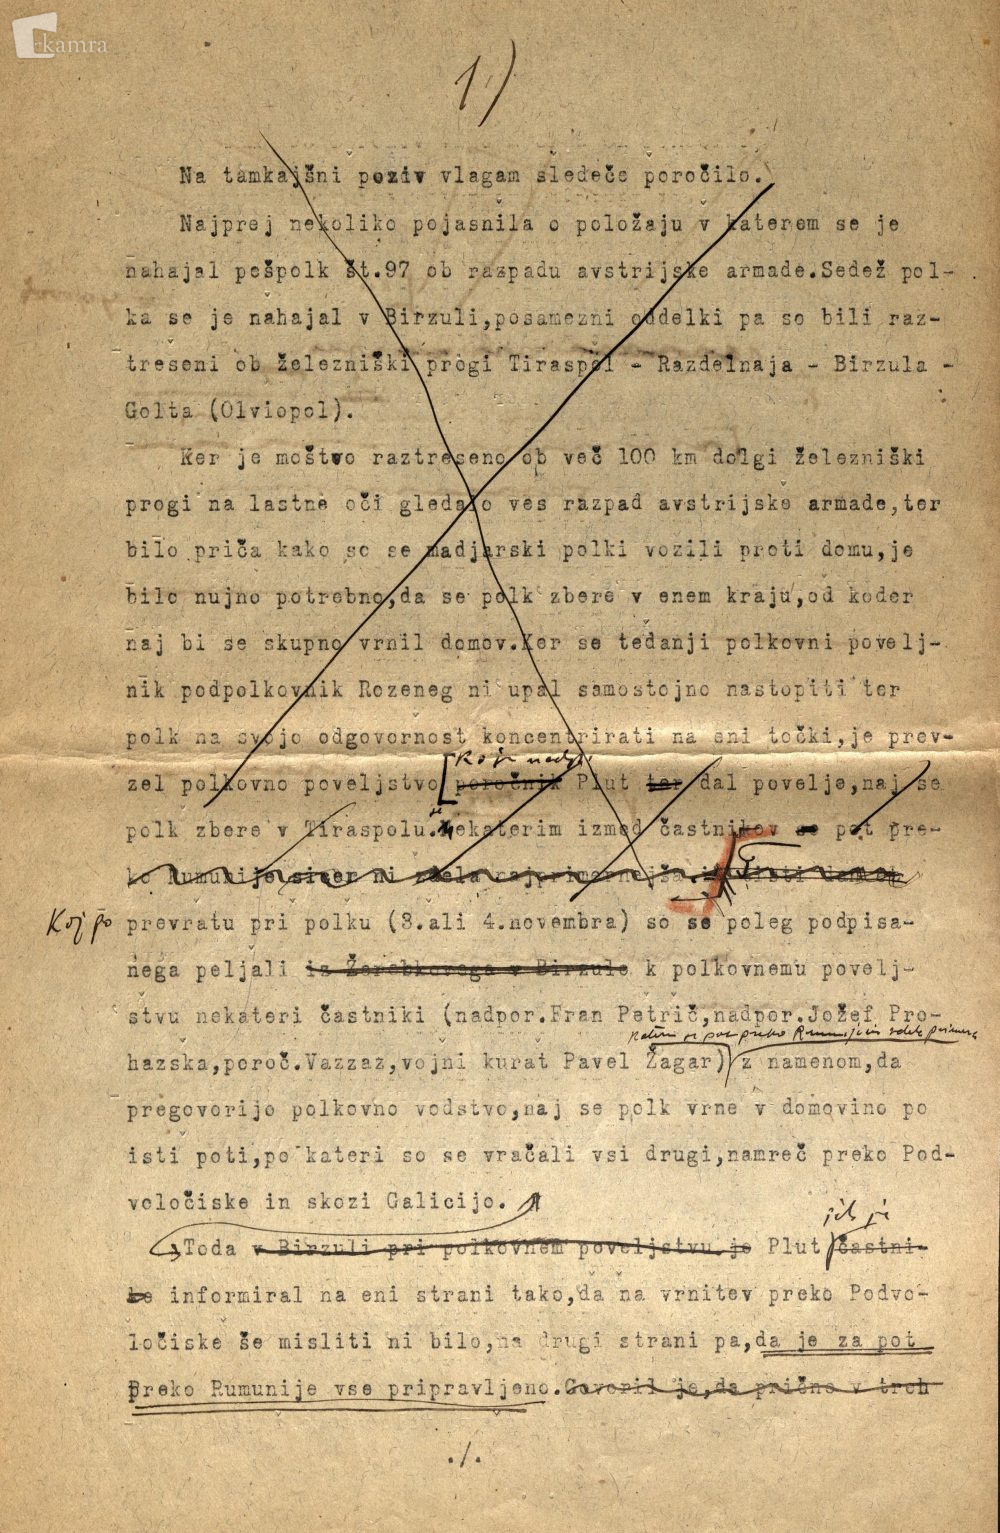 kamra
1)
Na tamkajšni poziv vlagam sledeče poročilo.
Najprej nekoliko pojasnila o položaju v katerem se je
nahajal pešpolk št.97 ob razpadu avstrijske armade.Sedež pol-
ka se je nahajal v Birzuli,posamezni oddelki pa so bili raz-
treseni ob železniški progi Tiraspol - Razdelnaja - Birzula -
Golta (Olviopol).
Ker je moštvo raztreseno ob več 100 km dolgi železniški
progi na lastne oči gledalo ves razpad avstrijske armade,ter
bilo priča kako so se madjarski polki vozili proti domu,je
bilo nujno potrebno,da se polk zbere v enem kraju,od koder
naj bi se skupno vrnil domov.Ker se tedanji polkovni povelj-
nik podpolkovnik Rozeneg ni upal samostojno nastopiti ter
polk na svojo odgovornost koncentrirati na eni točki,je prev-
zel polkovno poveljstvo poročnik Plut ter dal povelje,naj se
polk zbere v Tiraspolu.Nekaterim izmed častnikov se pot pre-
ko Rumunije sicer ni zdela najprimernejša.
Koj po prevratu pri polku (3.ali 4.novembra) so se poleg podpisa-
nega peljali iz Žerebkovega v Birzulo k polkovnemu povelj-
stvu nekateri častniki (nadpor.Fran Petrič,nadpor.Jožef Pro-
katerim se pot preko Rumunije ni zdela
hazska,poroč.Vazzaz,vojni kurat Pavel Žagar) z namenom,da
pregovorijo polkovno vodstvo,naj se polk vrne v domovino po
isti poti,po kateri so se vračali vsi drugi,namreč preko Pod-
voločiske in skozi Galicijo.
jih je
Toda v Birzuli pri polkovnem poveljstvu je Plut častni-
ke informiral na eni strani tako,da na vrnitev preko Podvo-
ločiske še misliti ni bilo,na drugi strani pa,da je za pot
preko Rumunije vse pripravljeno.Govoril je,da prično v treh
./.